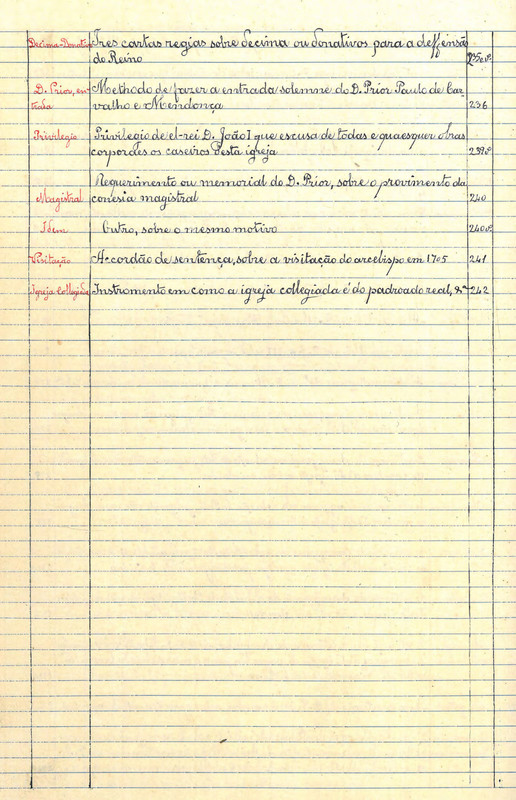 Decima-Donativo Tres cartas regias sobre decima ou donativos para a deffensão
do Reino 235 vº
D. Prior, en- Methodo de fazer a entrada solemne do D. Prior Paulo de Car-
trada valho e Mendonça 236
Privilegio Privilegio de el-rei D. João I que escusa de todas e quaesquer obras
corporaes os caseiros desta igreja 239 vº
Requerimento ou memorial do D. Prior, sobre o provimento da
Magistral conesia magistral 240
Idem Outro, sobre o mesmo motivo 240 vº
Visitação Accordão de sentença, sobre a visitação do arcebispo em 1705 241
Igreja Collegiada Instromento em como a igreja collegiada é do padroado real, &ª 242